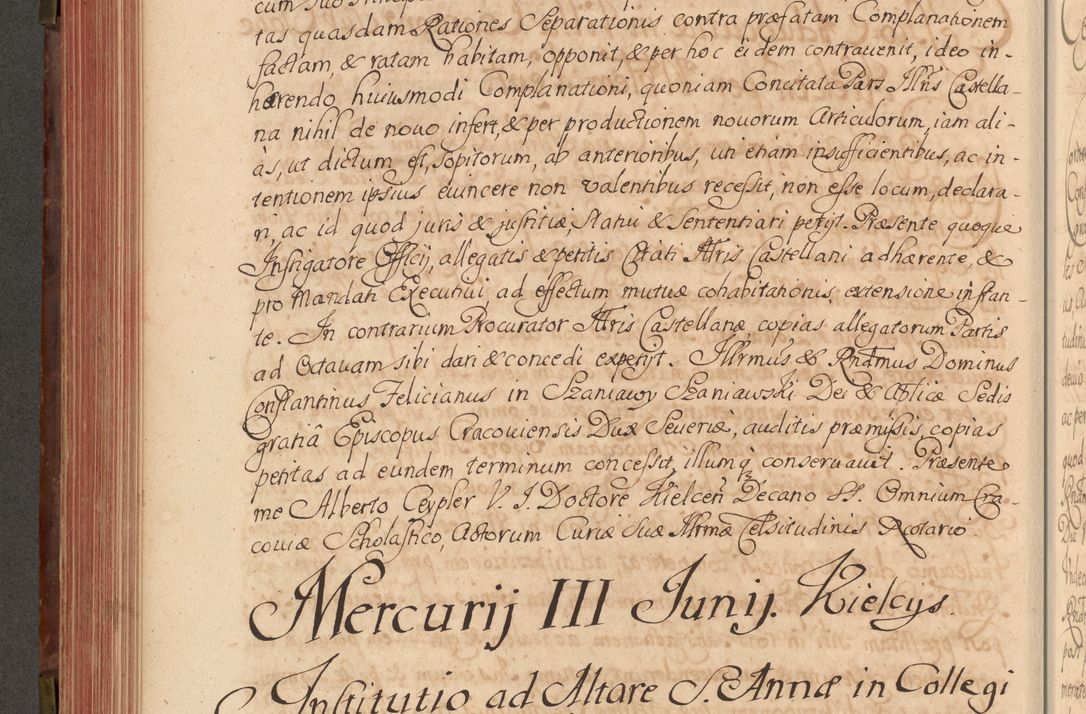 tas quasdam Rationes Separationis contra præfatam Complanationem
factam, & ratam habitam, opponit, & per hoc eidem contrauenit, ideo in-
hærendo huiusmodi Complanationi, quoniam Concitata Pars Illris Castella-
na nihil de nouo infert, & per productionem nouorum Articulorum, iam ali-
ás, ut dictum est, sopitorum, ab anterioribus, uti etiam insufficientibus, ac in-
tentionem ipsius euincere non valentibus recessit, non esse locum, declara-
ri, ac id quod juris & justitiæ, statui & Sententiari petijt. Præsente quoque
Instigatore Officij, allegatis & petitis Citati Illris Castellani adhærente, &
pro Mandati Executiui ad effectum mutuæ cohabitationis, extensione instan-
te. In contrarium Procurator Illris Castellanæ, copias allegatorum Partis
ad Octauam sibi dari & concedi expetijt. Illrmus & Rndmus Dominus
Constantinus Felicianus in Szaniawy Szaniawski Dei & Aplicæ Sedis
gratiâ Episcopus Cracouiensis Dux Seueriæ, auditis præmissis, copias
petitas ad eundem terminum concessit, illumq conseruauit. Præsente
me Alberto Ceypler V. J. Doctore Kielcen Decano SS. Omnium Cra-
couiæ Scholastico, Actorum Curiæ Suæ Illrmæ Celsitudinis Notario.
Mercurij III Junij. Kielcys.
Institutio ad Altare S. Annæ in Collegi